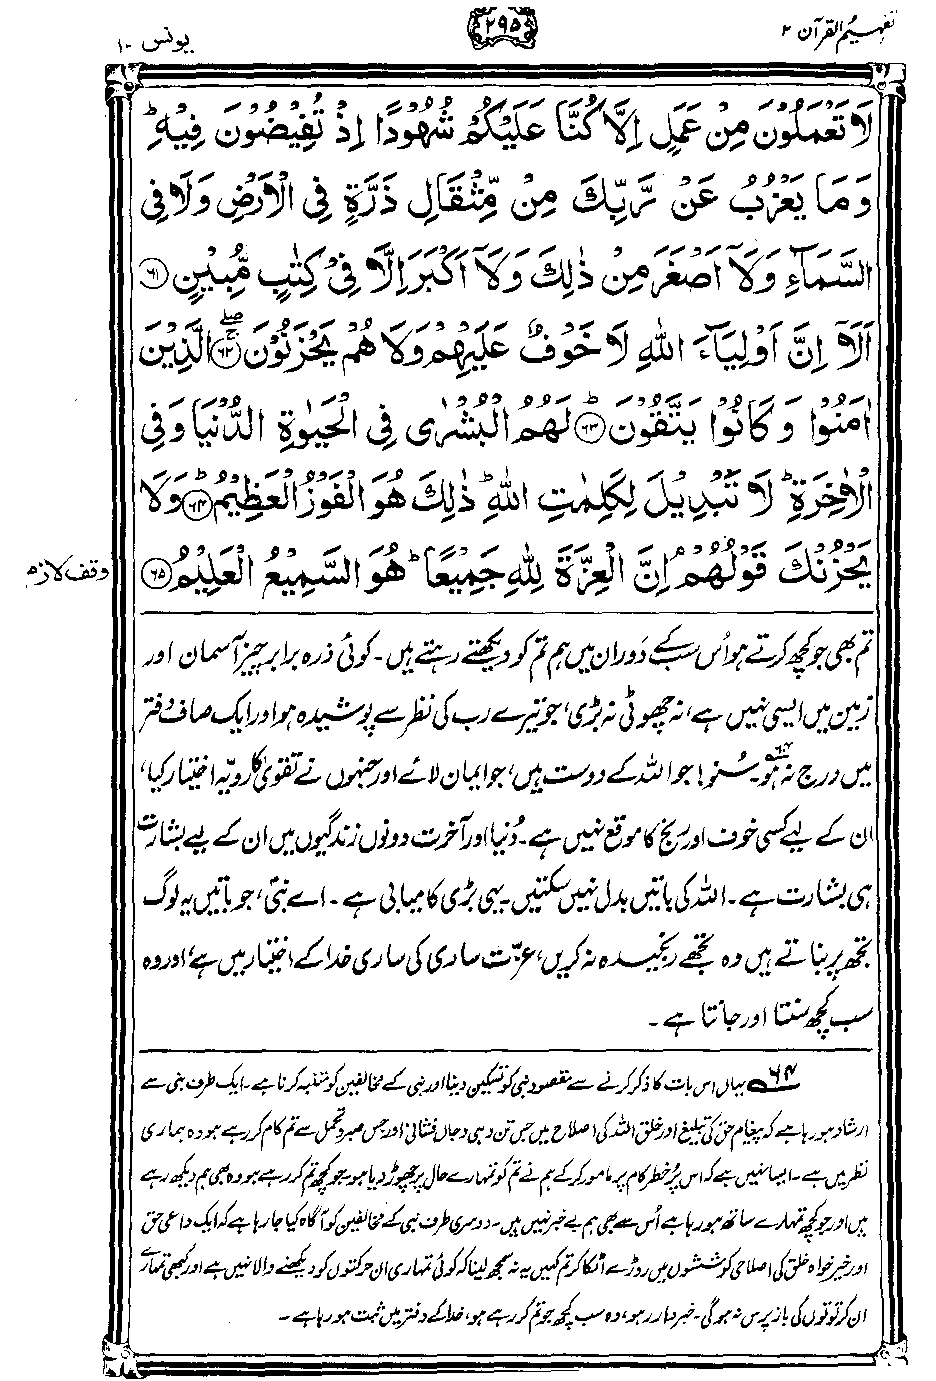 تفہیم القرآن ۲
۲۹۵
یونس ۱۰
لَا تَعْمَلُوْنَ مِنْ عَمَلٍ اِلَّا كُنَّا عَلَيْكُمْ شُهُوْدًا اِذْ تُفِيْضُوْنَ فِيْهِ ؕ
وَمَا يَعْزُبُ عَنْ رَّبِّكَ مِنْ مِّثْقَالِ ذَرَّةٍ فِي الْاَرْضِ وَلَا فِي
السَّمَآءِ وَلَاۤ اَصْغَرَ مِنْ ذٰلِكَ وَلَاۤ اَكْبَرَ اِلَّا فِيْ كِتٰبٍ مُّبِيْنٍ ﴿۶۱﴾
اَلَاۤ اِنَّ اَوْلِيَآءَ اللّٰهِ لَا خَوْفٌ عَلَيْهِمْ وَلَا هُمْ يَحْزَنُوْنَ ﴿۶۲﴾ۚۖ الَّذِيْنَ
اٰمَنُوْا وَكَانُوْا يَتَّقُوْنَ ﴿۶۳﴾ؕ لَهُمُ الْبُشْرٰى فِي الْحَيٰوةِ الدُّنْيَا وَفِي
الْاٰخِرَةِ ؕ لَا تَبْدِيْلَ لِكَلِمٰتِ اللّٰهِ ؕ ذٰلِكَ هُوَ الْفَوْزُ الْعَظِيْمُ ﴿۶۴﴾ؕ وَلَا
يَحْزُنْكَ قَوْلُهُمْ ۘ اِنَّ الْعِزَّةَ لِلّٰهِ جَمِيْعًا ؕ هُوَ السَّمِيْعُ الْعَلِيْمُ ﴿۶۵﴾
وقف لازم
تم بھی جو کچھ کرتے ہو اُس سب کے دَوران میں ہم تم کو دیکھتے رہتے ہیں۔ کوئی ذرہ برابر چیز آسمان اور
زمین میں ایسی نہیں ہے، نہ چھوٹی نہ بڑی، جو تیرے رب کی نظر سے پوشیدہ ہو اور ایک صاف دفتر
میں درج نہ ہو۶۴۔ سُنو! جو اللہ کے دوست ہیں، جو ایمان لائے اور جنہوں نے تقویٰ کا رویّہ اختیار کیا،
ان کے لیے کسی خوف اور رنج کا موقع نہیں ہے۔ دُنیا اور آخرت دونوں زندگیوں میں ان کے لیے بشارت
ہی بشارت ہے۔ اللہ کی باتیں بدل نہیں سکتیں۔ یہی بڑی کامیابی ہے۔ اے نبیؐ، جو باتیں یہ لوگ
تجھ پر بناتے ہیں وہ تجھے رنجیدہ نہ کریں، عزّت ساری کی ساری خدا کے اختیار میں ہے، اور وہ
سب کچھ سنتا اور جانتا ہے۔
۶۴ یہاں اس بات کا ذکر کرنے سے مقصود نبی کو تسکین دینا اور نبی کے مخالفین کو متنبہ کرنا ہے۔ ایک طرف نبی سے
ارشاد ہو رہا ہے کہ پیغامِ حق کی تبلیغ اور خلق اللہ کی اصلاح میں جس تن دہی و جاں فشانی اور جس صبر و تحمل سے تم کام کر رہے ہو وہ ہماری
نظر میں ہے۔ ایسا نہیں ہے کہ اس پُر خطر کام پر مامور کر کے ہم نے تم کو تمہارے حال پر چھوڑ دیا ہو۔ جو کچھ تم کر رہے ہو وہ بھی ہم دیکھ رہے
ہیں اور جو کچھ تمہارے ساتھ ہو رہا ہے اُس سے بھی ہم بے خبر نہیں ہیں۔ دوسری طرف نبی کے مخالفین کو آگاہ کیا جا رہا ہے کہ ایک داعیِ حق
اور خیر خواہِ خلق کی اصلاحی کوششوں میں روڑے اٹکا کر تم کہیں یہ نہ سمجھ لینا کہ کوئی تمہاری ان حرکتوں کو دیکھنے والا نہیں ہے اور کبھی تمہارے
ان کرتوتوں کی باز پرس نہ ہوگی۔ خبردار رہو، وہ سب کچھ جو تم کر رہے ہو، خدا کے دفتر میں ثبت ہو رہا ہے۔